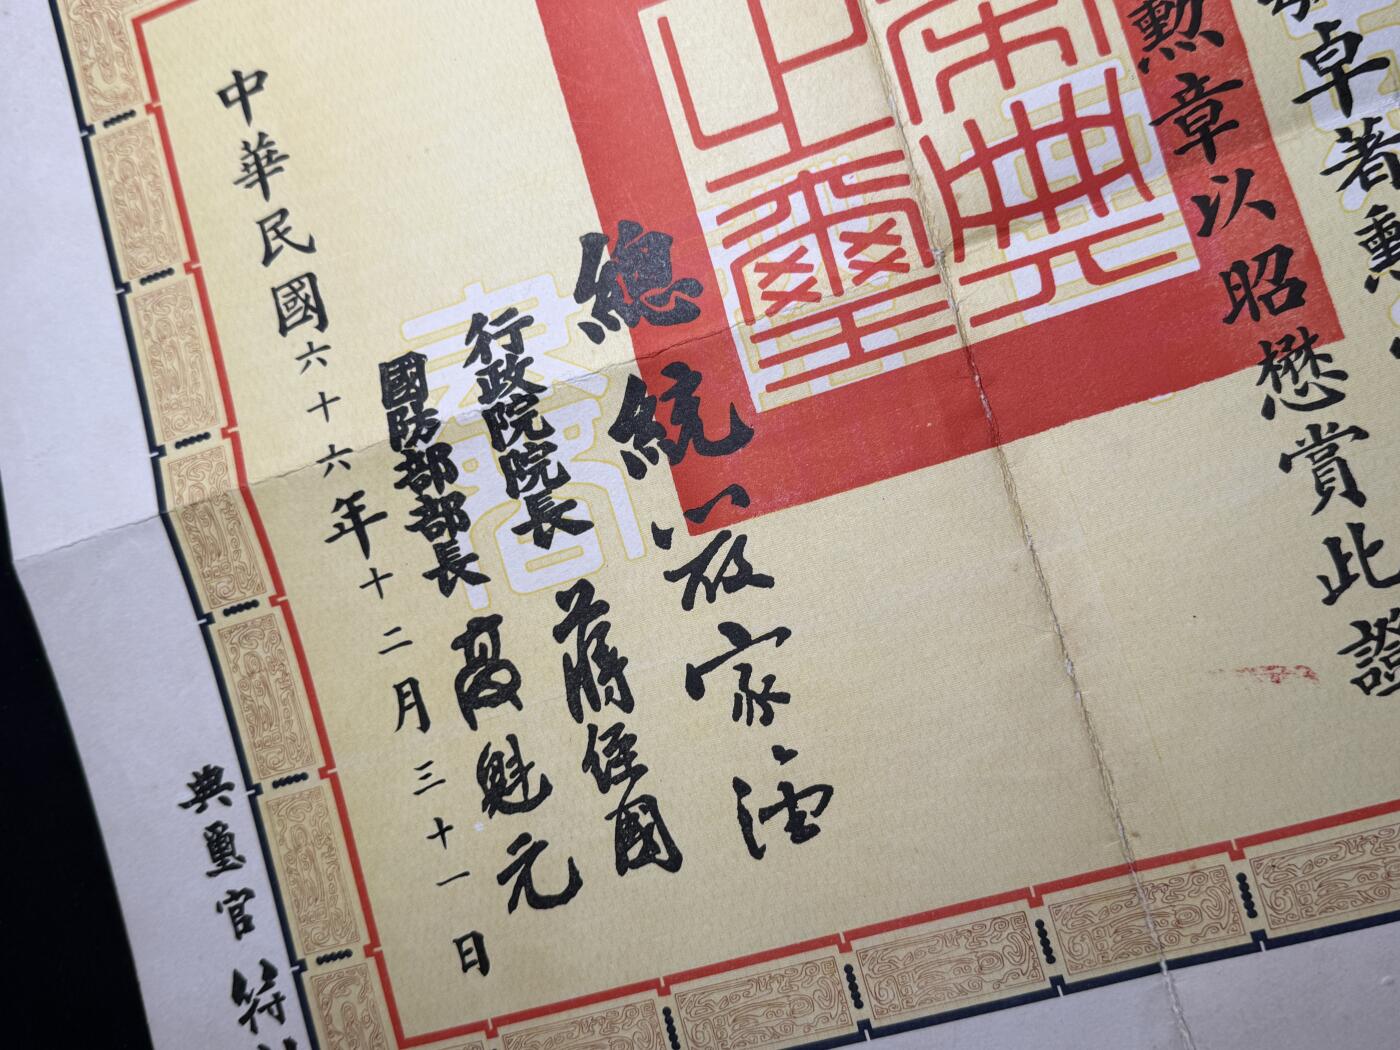 卓著勳
勳章以昭懋賞此證
總統 嚴家淦
行政院院長 蔣經國
國防部部長 高魁元
中華民國六十六年十二月三十一日
典璽官 符